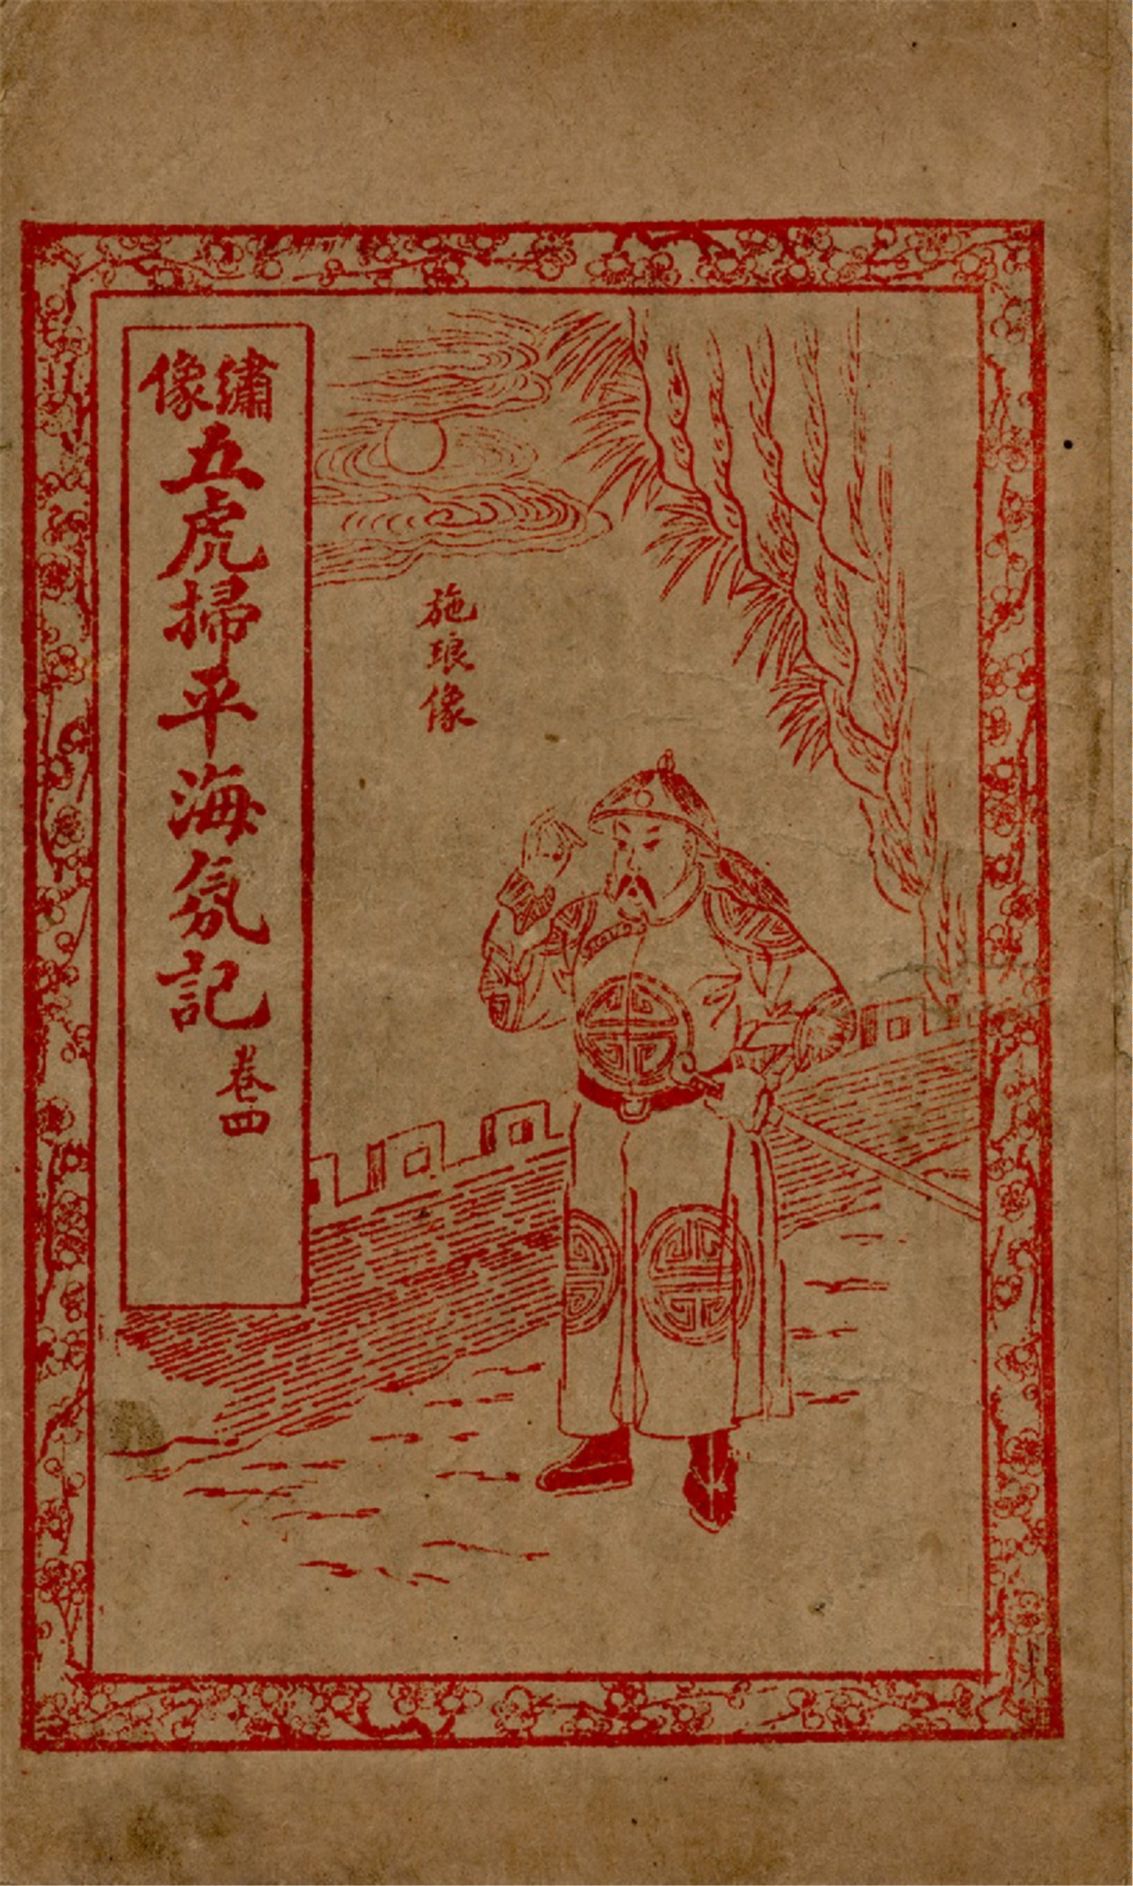 施琅像
繡像
五虎掃平海氛記
卷四